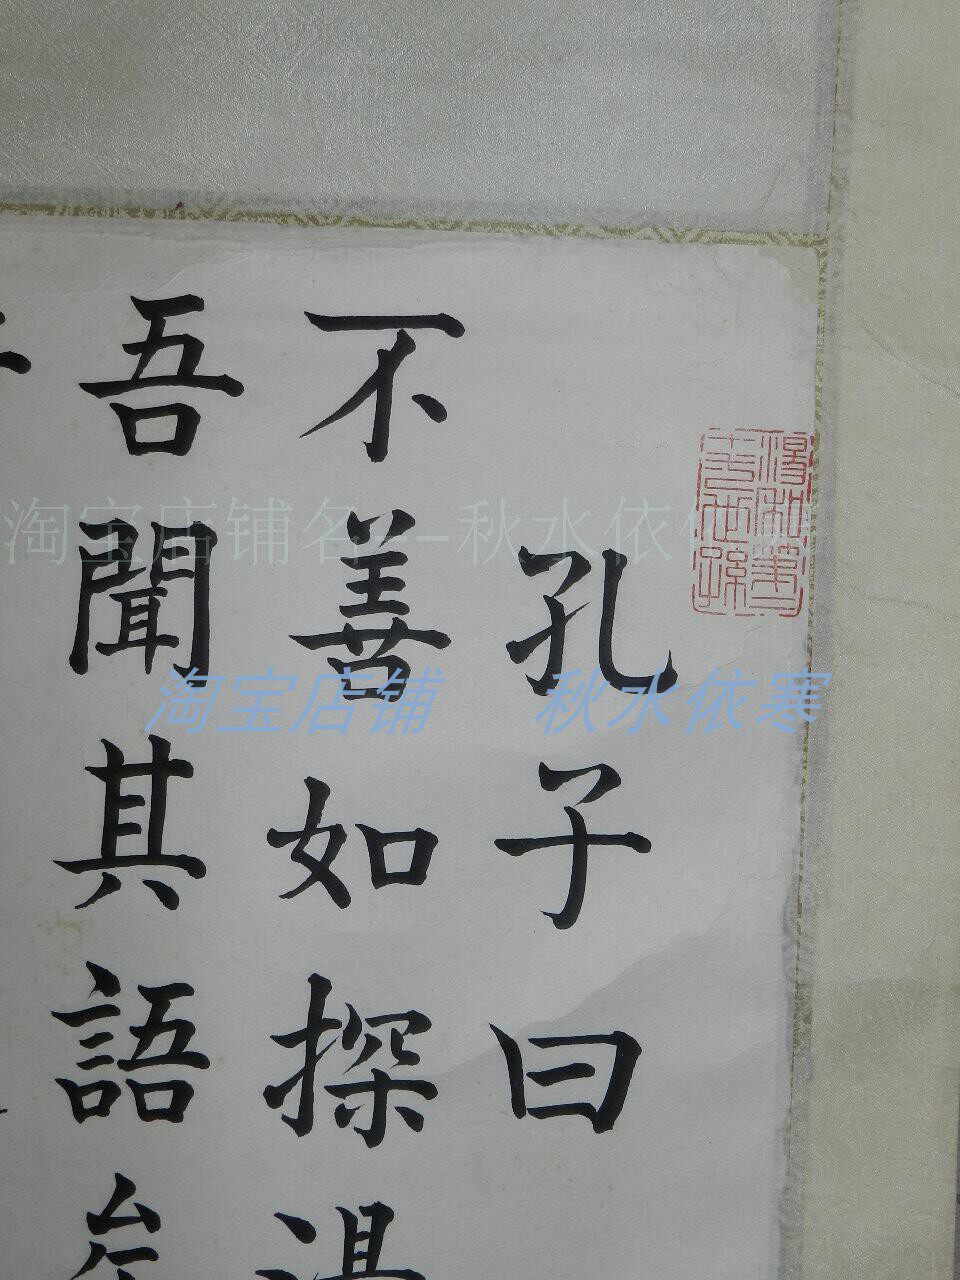 孔子曰
不善如探湯
吾聞其語矣
淘宝店铺名--秋水依
淘宝店铺 秋水依寒